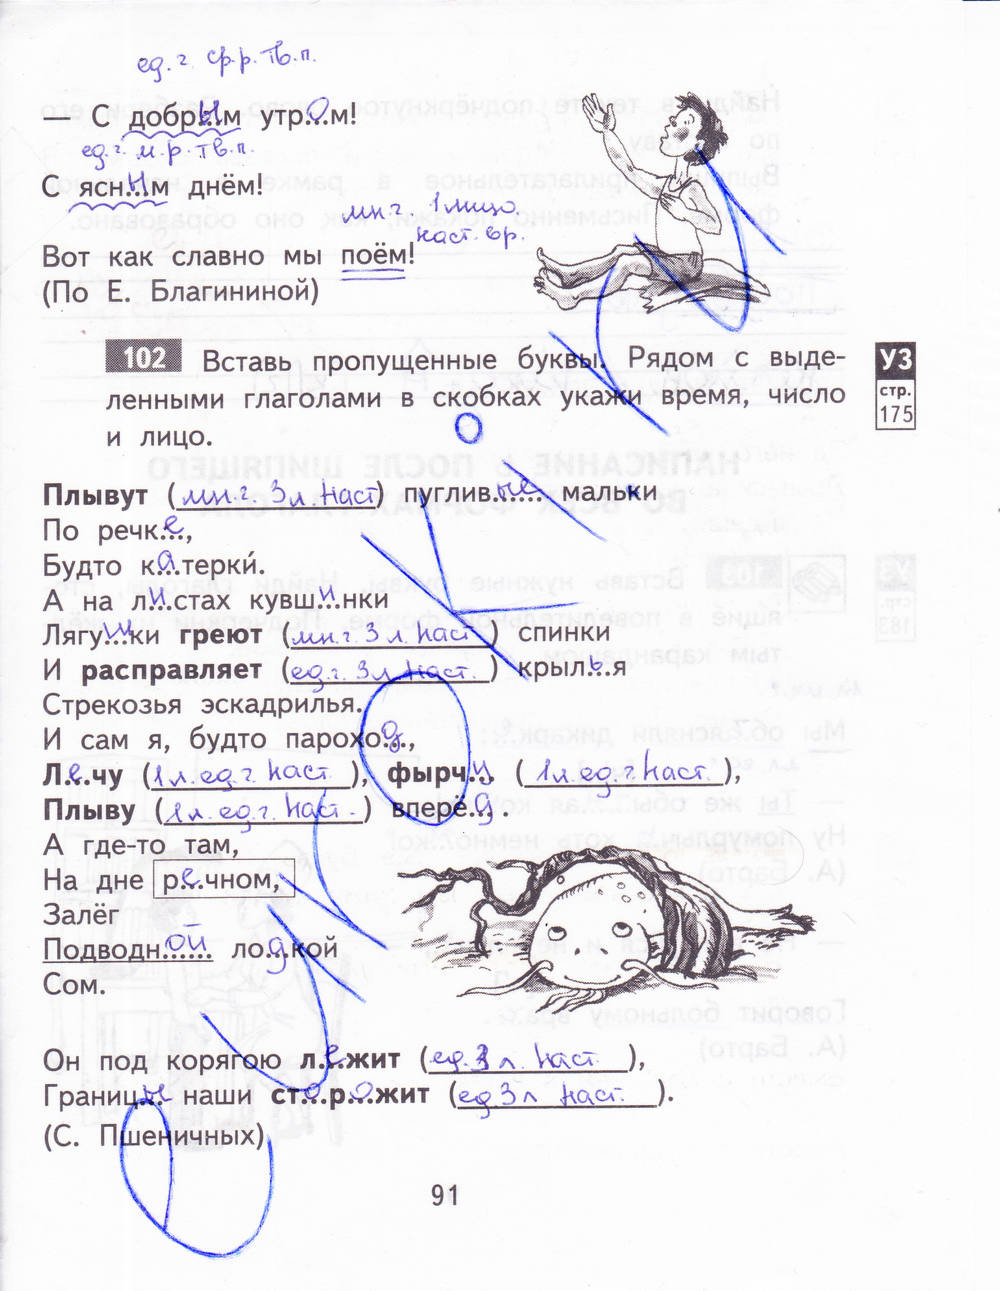 ед. г. ср. р. тв. п.
— С добрым утром!
ед. г. м. р. тв. п.
С ясным днём!
мн г. 1 лицо
наст. вр.
Вот как славно мы поём!
(По Е. Благининой)
102 Вставь пропущенные буквы. Рядом с выде-
ленными глаголами в скобках укажи время, число
и лицо.
УЗ
стр.
175
Плывут (мн г. 3 л наст) пугливые мальки
По речке,
Будто катерки́.
А на листах кувшинки
Лягушки греют (мн г. 3 л. наст) спинки
И расправляет (ед. г. 3 л наст.) крылья
Стрекозья эскадрилья.
И сам я, будто пароход,
Лечу (1 л. ед. г. наст.), фырчу (1 л. ед. г. наст.),
Плыву (1 л. ед. г. наст.) вперёд.
А где-то там,
На дне речном,
Залёг
Подводной лодкой
Сом.
Он под корягою лежит (ед. 3 л. наст.),
Границы наши сторожит (ед 3 л наст.).
(С. Пшеничных)
91